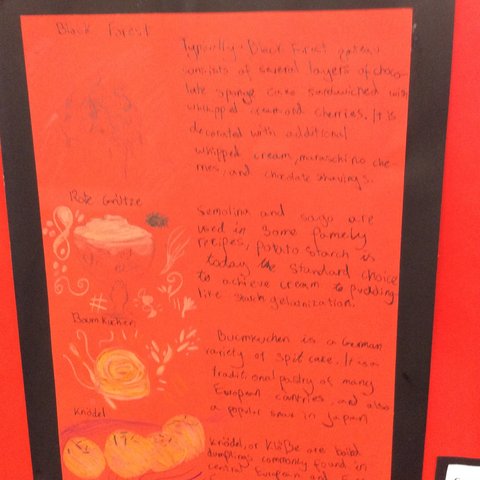 Black Forest
Typically, Black Forest gateau
consists of several layers of choco-
late sponge cake sandwiched with
whipped cream and cherries. It is
decorated with additional
whipped cream, maraschino che-
rries, and chocolate shavings.
Rote Grütze
Semolina and sago are
used in some famely
recipes, potato starch is
today the standard choice
to achieve cream to pudding-
like starch gelanization.
Baumkuchen
Bucmkuchen is a German
variety of spit cake. It is a
traditional pastry of many
European countries, and also
a popular snak in Japan
Knödel
Knödel, or Klöße are boild
dumplings commonly found in
central European and East